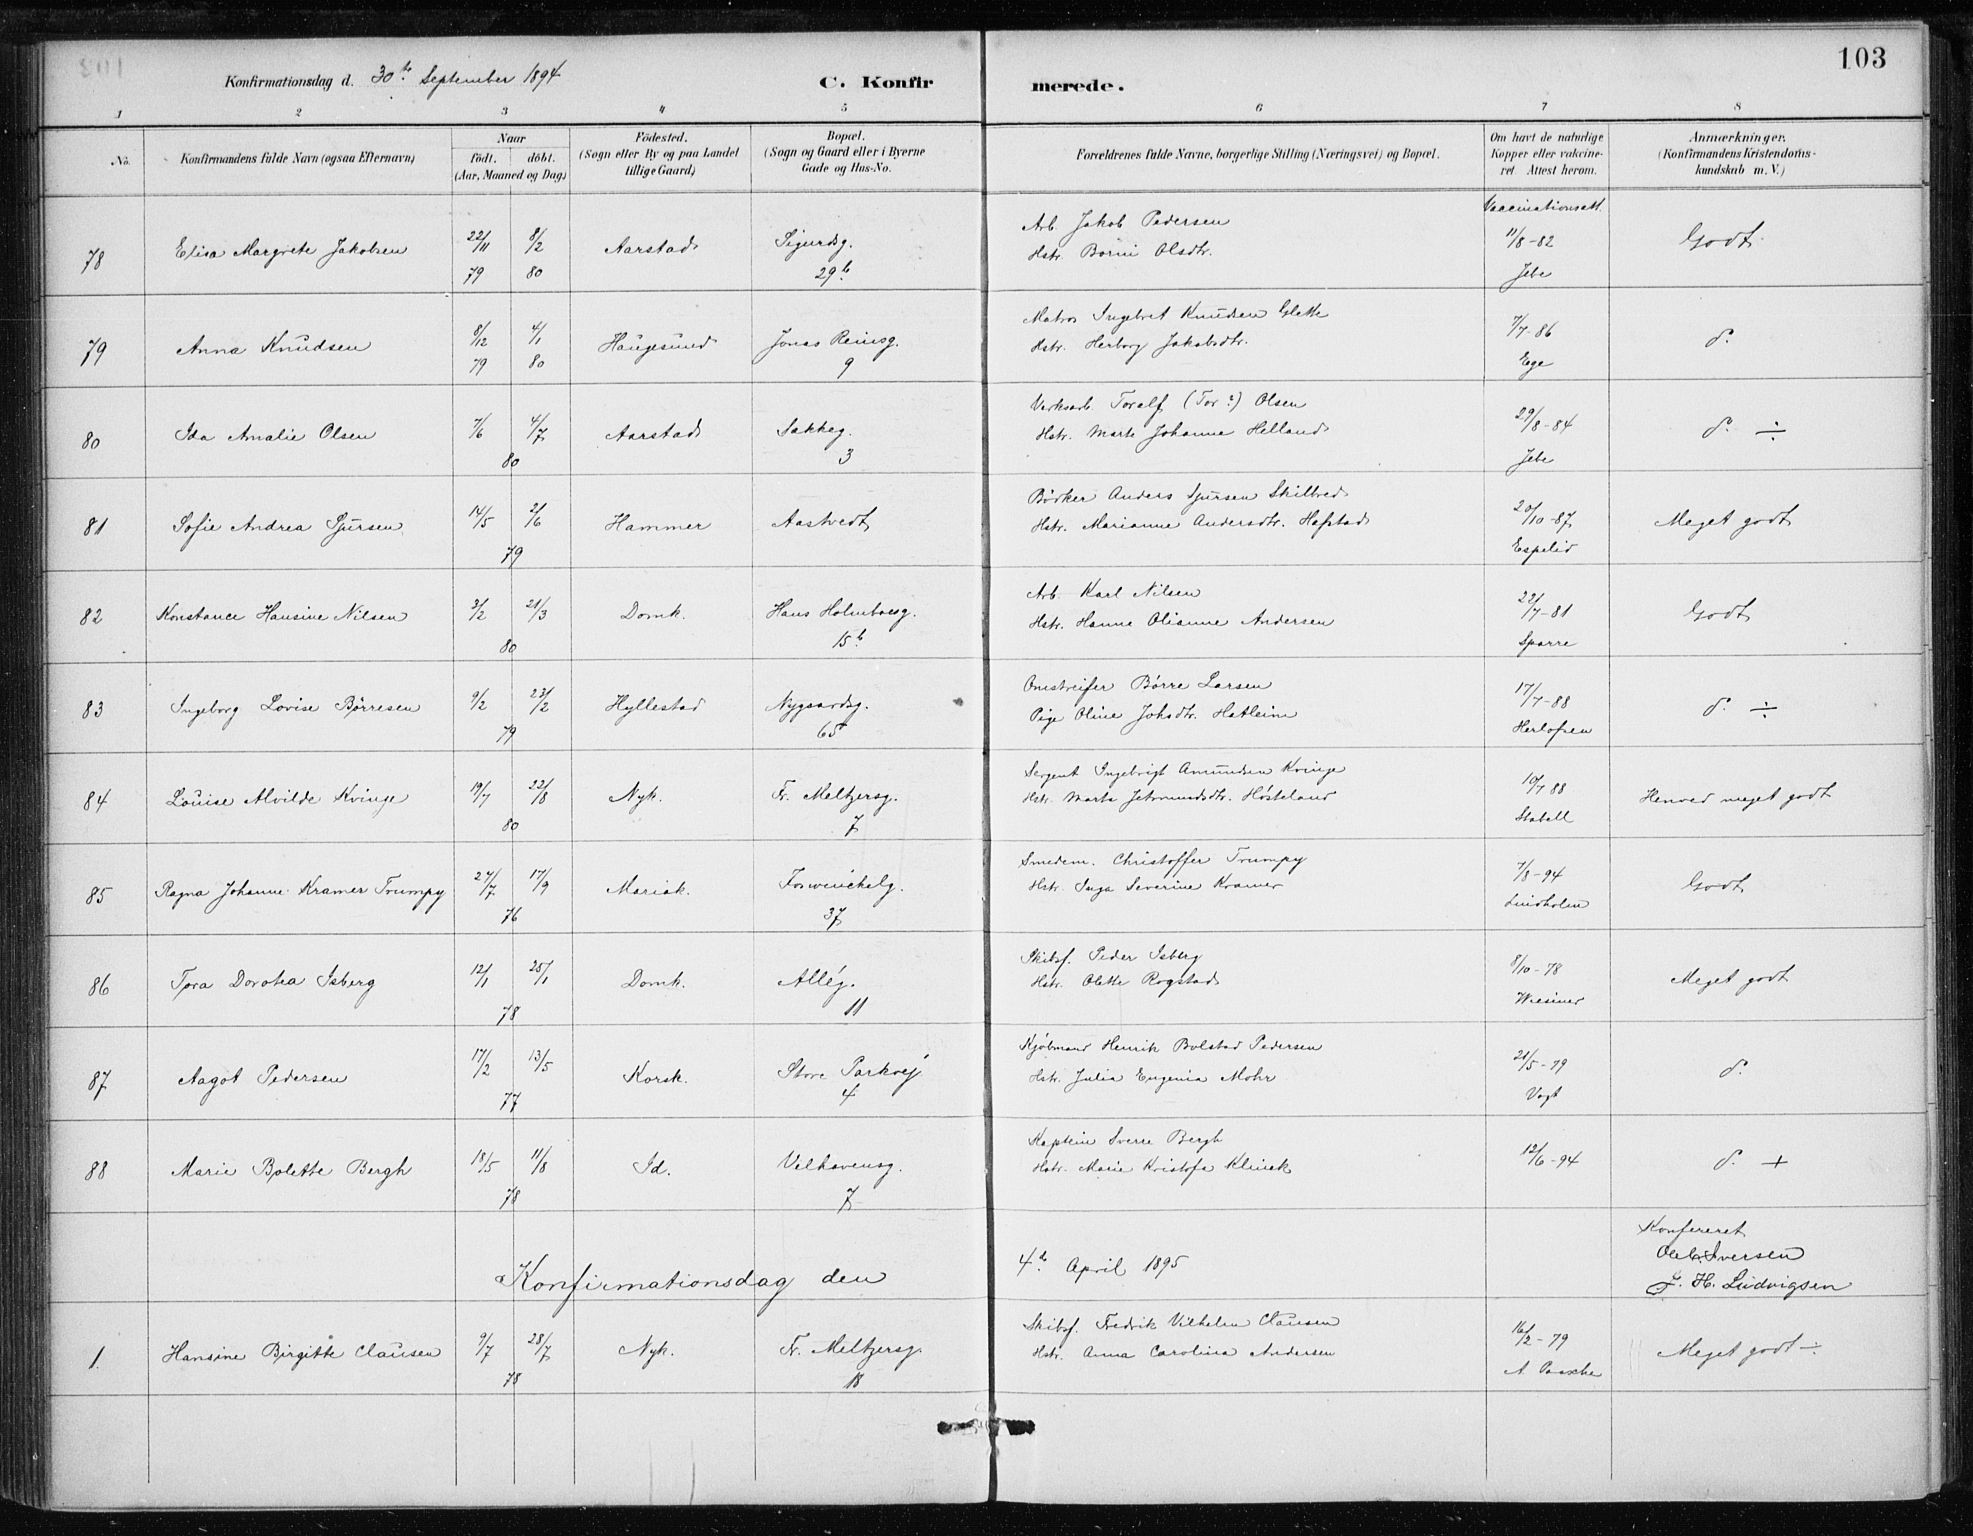 103
Konfirmationsdag d. 30te September 1894
C. Konfirmerede.
1 2 3 4 5 6 7 8
No.
Konfirmandens fulde Navn (ogsaa Efternavn)
Naar
födt. döbt.
(Aar, Maaned og Dag)
Födested.
(Sogn eller By og paa Landet
tillige Gaard)
Bopæl.
(Sogn og Gaard eller i Byerne
Gade og Hus-No.
Forældrenes fulde Navne, borgerlige Stilling (Næringsvei) og Bopæl.
Om havt de naturlige
Kopper eller vakcine-
ret Attest herom.
Anmærkninger.
(Konfirmandens Kristendoms-
kundskab m. V.)
Vaccinationsatt.
78 Elisa Margrete Jakobsen 22/11 79 8/2 80 Aarstad Sigurdsg. 29b
Arb Jakob Pedersen
Hstr. Borni Olsdtr.
11/8-82 Jebe
Godt
79 Anna Knudsen 8/12 79 4/1 80 Haugesund Jonas Reinsg. 9
Matros Ingebret Knudsen Glette
Hstr. Herborg Jakobsdtr.
7/7-86 Ege
d.
80 Ida Amalie Olsen 7/6 4/7 80 Aarstad Bakkeg. 3
Verksarb. Toralf (Tor?) Olsen
Hstr. Marte Johanne Helland
29/8-84 Jebe
d. ÷
81 Sofie Andrea Sjursen 14/5 2/6 79 Hammer Aastvedt
Bödker Anders Sjursen Skilbred
Hstr. Marianne Andersdtr. Hafstad
20/10-87 Espelid
Meget godt
82 Konstance Hansine Nilsen 3/2 21/3 80 Domk. Hans Holmboesg. 15b
Arb. Karl Nilsen
Hstr. Hanne Olianne Andersen
22/7-81 Sparre
Godt
83 Ingeborg Lovise Børresen 9/2 23/2 79 Hyllestad Nygaardsg. 65
Omstreifer Børre Larsen
Pige Oline Johsdtr. Hatleim
17/7-88 Herlofsen
d. ÷
84 Louise Alvilde Kvinge 19/7 22/8 80 Nyk. Fr. Meltzersg. 7
Sergent Ingebrigt Amundsen Kvinge
Hstr. Marta Høsteland
10/7 88 Stabell
Henved meget godt
85 Ragna Johanne Kramer Trumpy 27/7 17/9 76 Mariak. Fosswinckelg. 37
Smedem. Christoffer Trumpy
Hstr. Inga Severine Kramer
7/8-94 Lindholm
Godt
86 Tora Dorotea Isberg 12/1 25/1 78 Domk. Allég. 11
Skibsf. Peder Isberg
Hstr. Olette Rogstad
8/10-78 Wiesener
Meget godt
87 Aagot Pedersen 17/2 13/5 77 Korsk. Store Parkvej 4
Kjöbmand Henrik Bolstad Pedersen
Hstr. Julia Eugenia Mohr
21/5-79 Vogt
d.
88 Marie Bolette Bergh 18/5 11/8 78 Id. Velhavensg. 7
Kaptein Sverre Bergh
Hstr. Marie Kristofa Klinck
12/6-94
d. +
Konfereret
Ole Iversen
J. H. Ludvigsen
Konfirmationsdag den 4de April 1895
1. Hansine Birgitte Clausen 9/7 28/7 78 Nyk. Fr. Meltzersg. 18
Skibsf. Fredrik Vilhelm Clausen
Hstr. Anna Carolina Andersen
16/2-79 A Paasche
Meget godt ÷